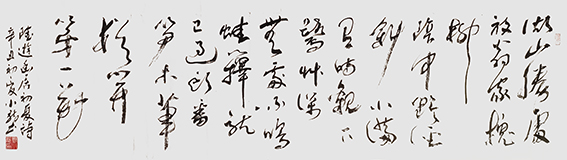 湖山勝處
放翁家槐
柳
陰中野徑
斜水滿
有時觀下
鷺草深
無處不鳴
蛙籜龍
已過頭番
筍木筆
猶開
第一花
陸游幽居初夏詩
辛丑初夏小